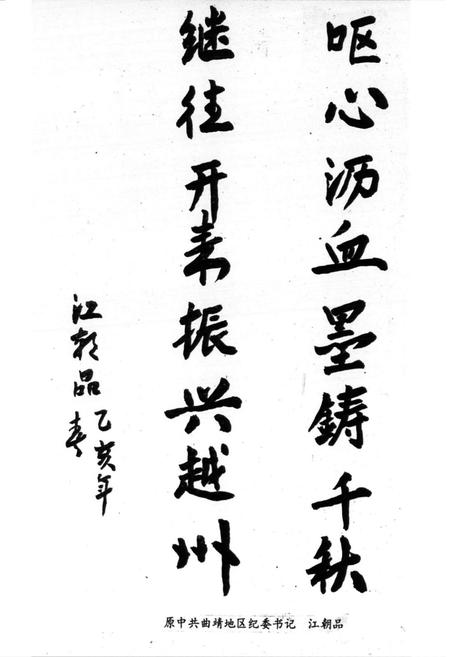 呕心沥血墨铸千秋
继往开来振兴越州
江朝品
乙亥年
春
原中共曲靖地区纪委书记　江朝品